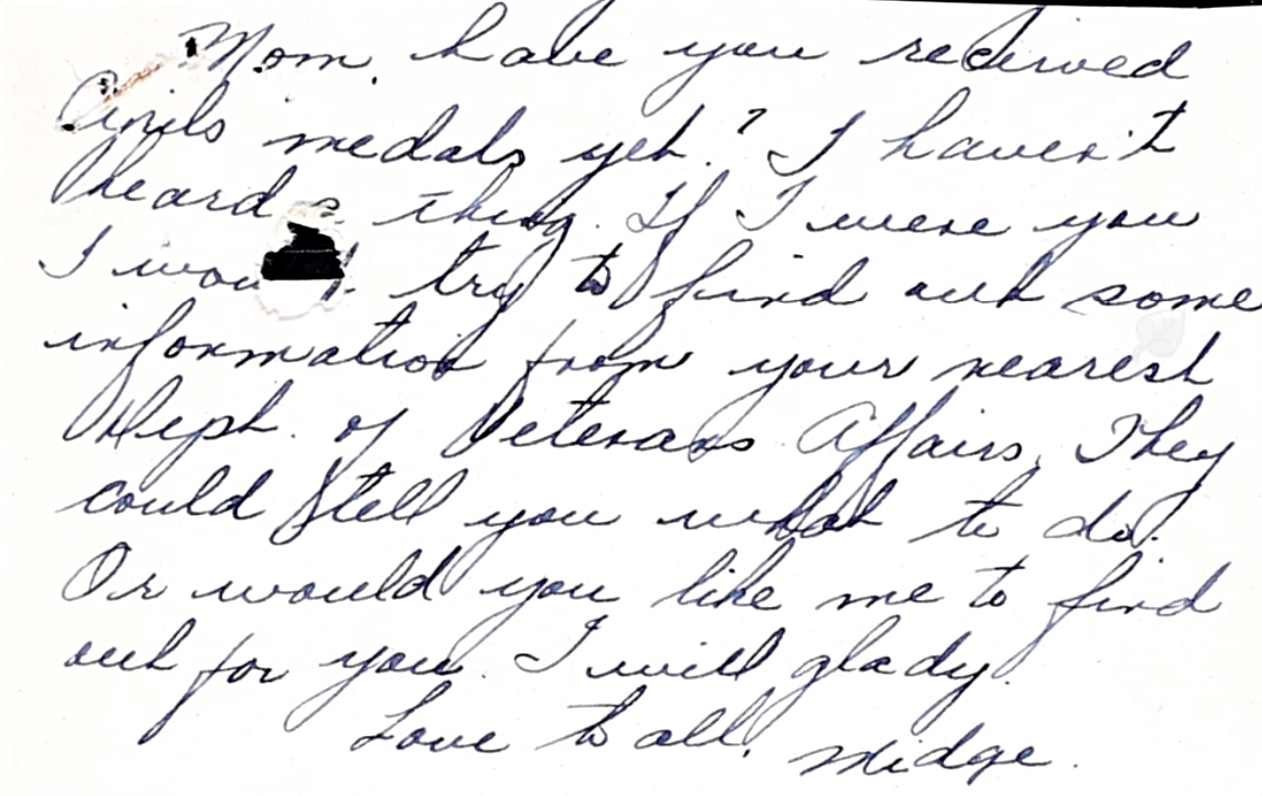 Mom, have you received
Cyrils medals yet? I haven't
heard a thing. If I were you
I would try to find out some
information from your nearest
Dept. of Veterans Affairs. They
could tell you what to do.
Or would you like me to find
out for you. I will glady.
Love to all. Midge.